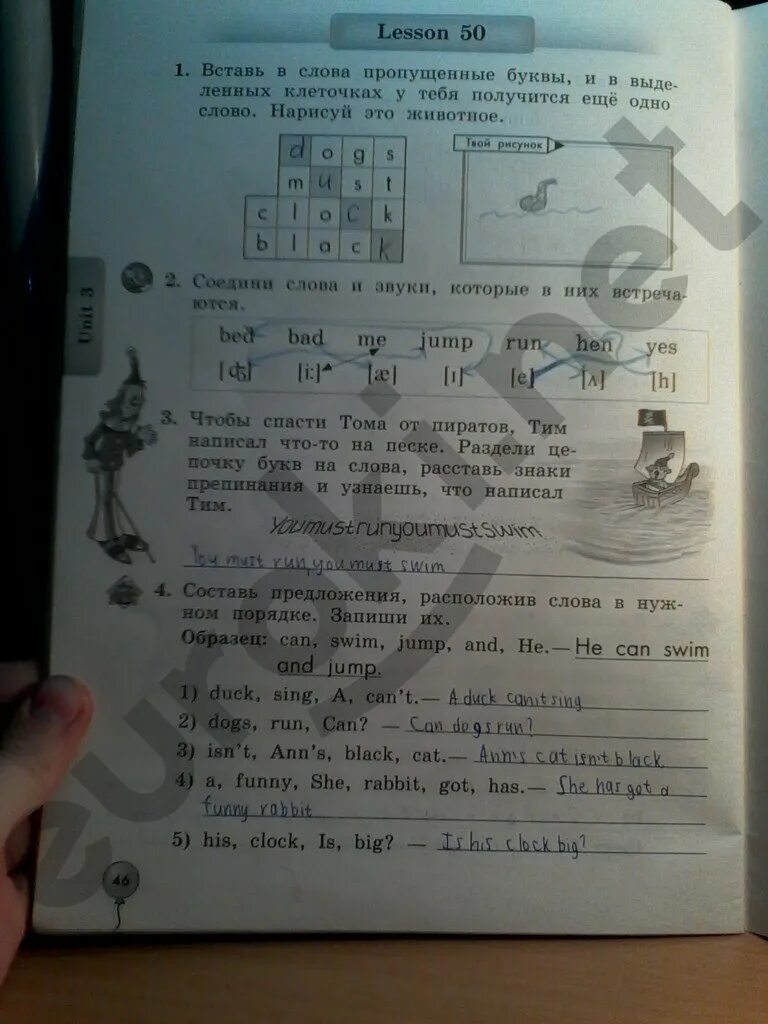 Lesson 50
1. Вставь в слова пропущенные буквы, и в выде-
ленных клеточках у тебя получится ещё одно
слово. Нарисуй это животное.
d o g s
m u s t
c l o c k
b l a c k
Твой рисунок
2. Соедини слова и звуки, которые в них встреча-
ются.
bed bad me jump run hen yes
[ʤ] [i:] [æ] [ɪ] [e] [ʌ] [h]
Unit 3
3. Чтобы спасти Тома от пиратов, Тим
написал что-то на песке. Раздели це-
почку букв на слова, расставь знаки
препинания и узнаешь, что написал
Тим.
Youmustrunyoumustswim
You must run, you must swim
4. Составь предложения, расположив слова в нуж-
ном порядке. Запиши их.
Образец: can, swim, jump, and, He.— He can swim
and jump.
1) duck, sing, A, can't.— A duck can't sing
2) dogs, run, Can? — Can dogs run?
3) isn't, Ann's, black, cat.— Ann's cat isn't black
4) a, funny, She, rabbit, got, has.— She has got a
funny rabbit
5) his, clock, Is, big? — Is his clock big?
46
euroki.net